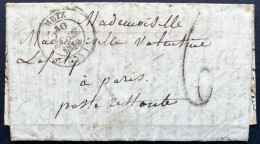 Mademoiselle
Mademoiselle Valentine
Laforty
à paris.
poste restante
METZ
6